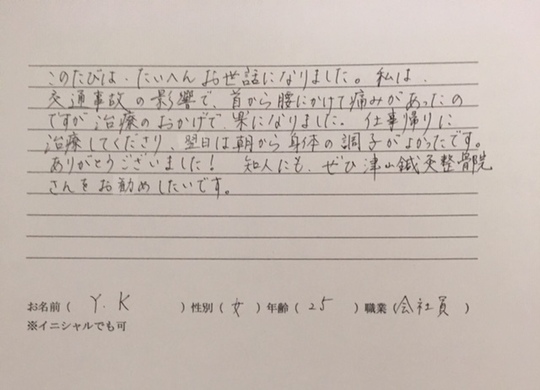 このたびは、たいへんお世話になりました。私は、
交通事故の影響で、首から腰にかけて痛みがあったの
ですが治療のおかげで、楽になりました。仕事帰りに
治療してくださり、翌日は朝から身体の調子がよかったです。
ありがとうございました！ 知人にも、ぜひ津山鍼灸整骨院
さんをお勧めしたいです。
お名前（ Y.K ）性別（女）年齢（25）職業（会社員）
※イニシャルでも可